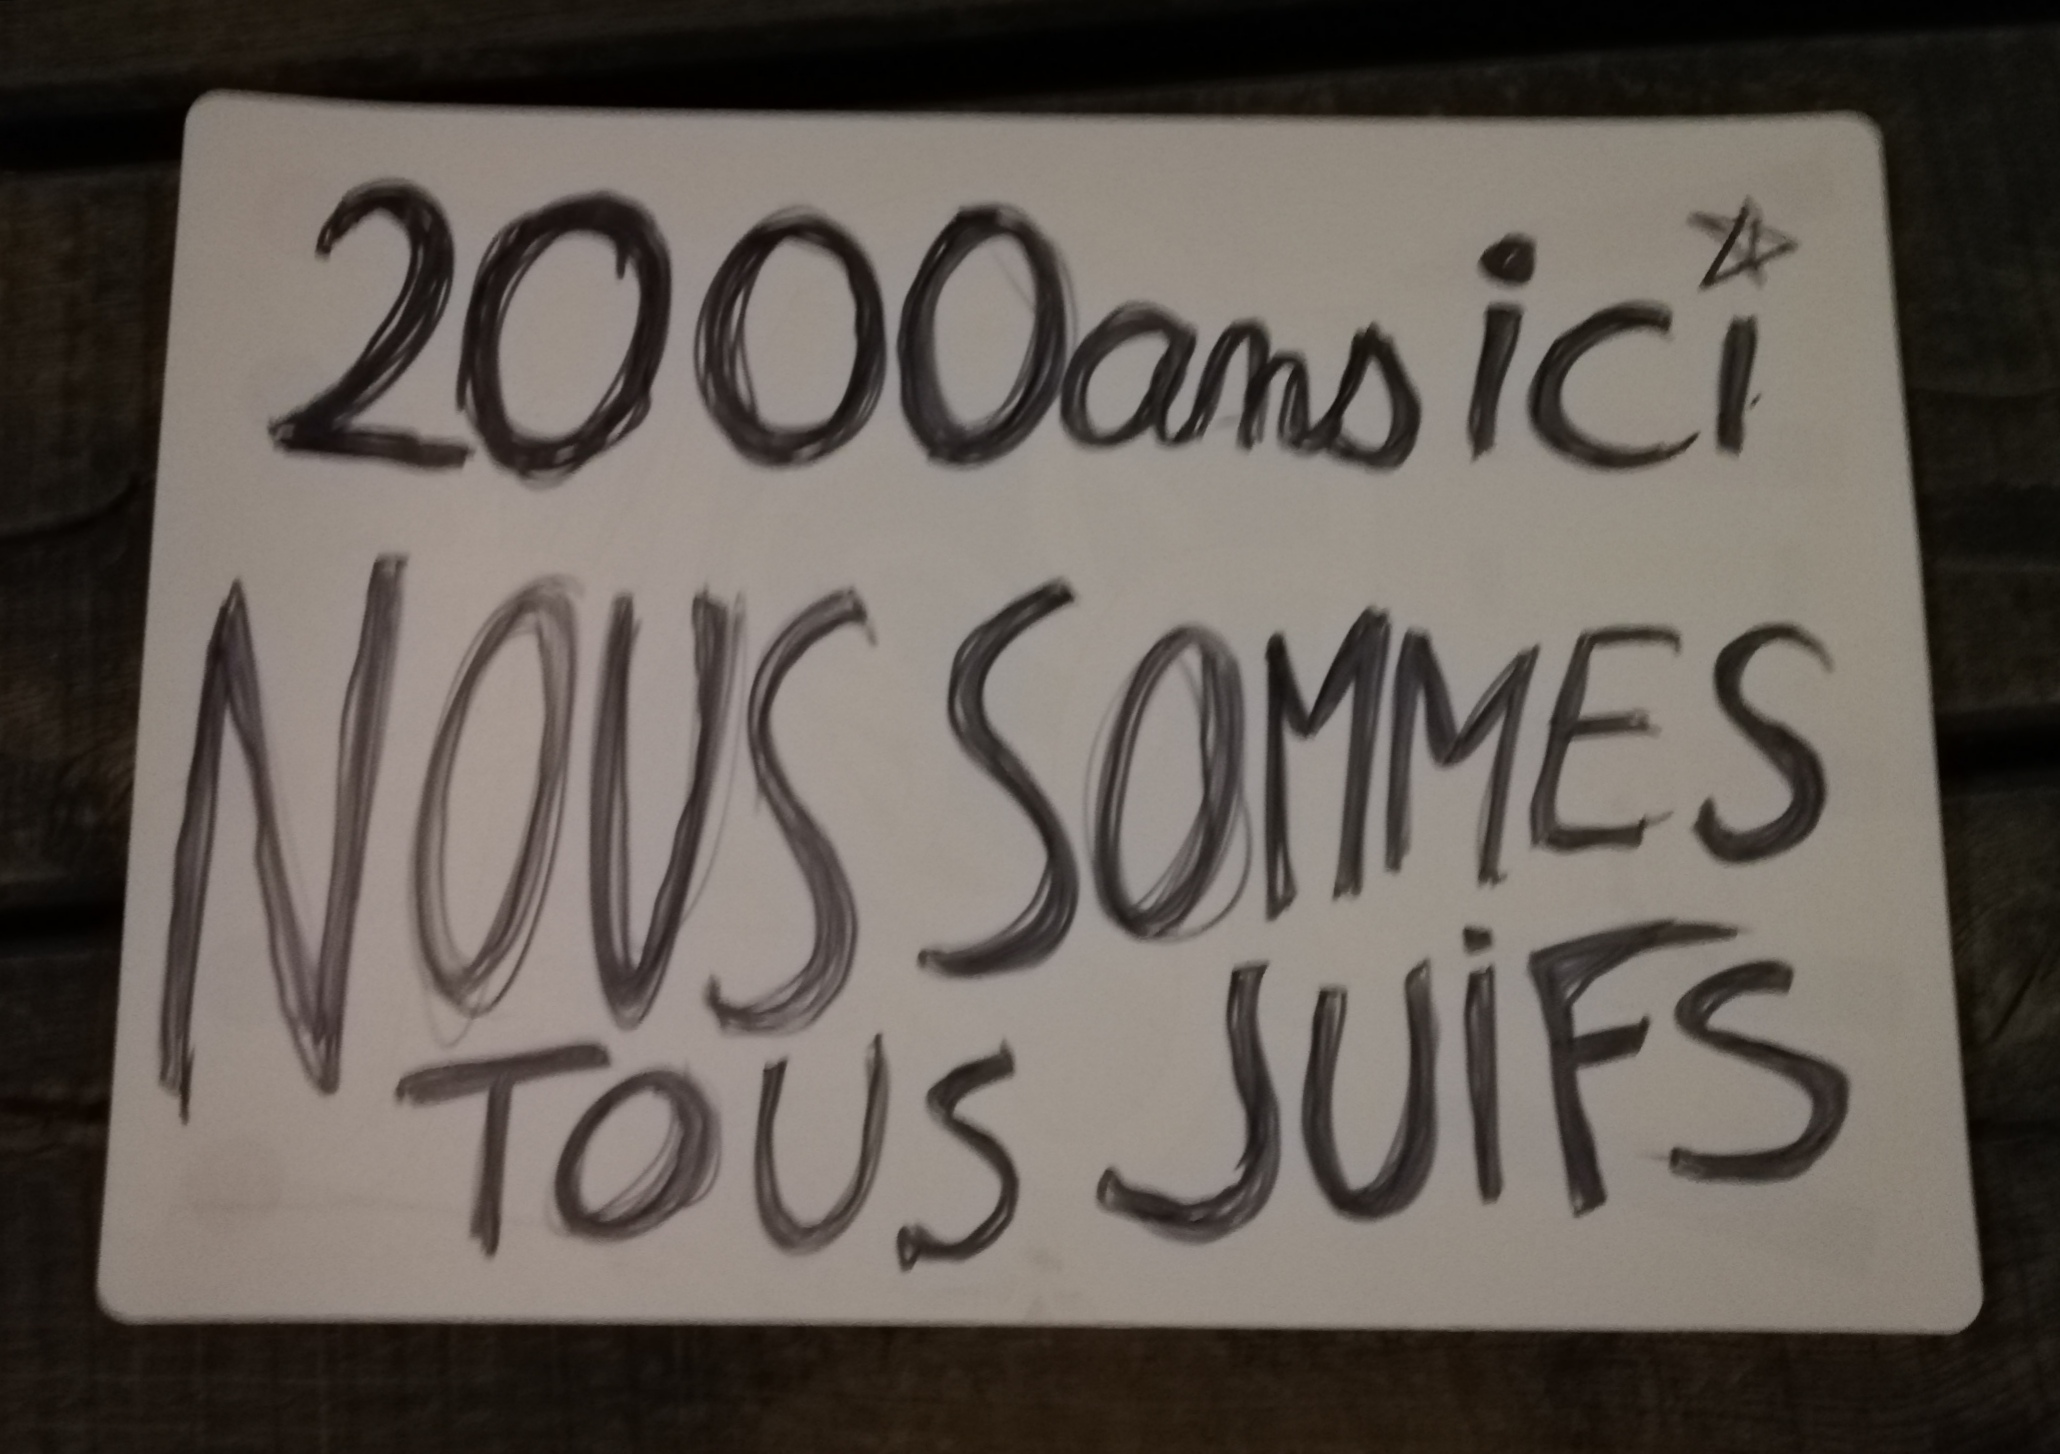 2000ans ici
NOUS SOMMES
TOUS JUiFS